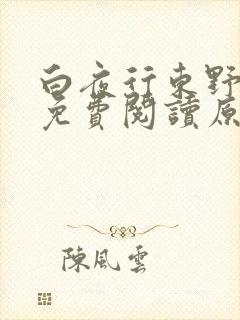 白夜行東野
免費閱讀原
陳風雲